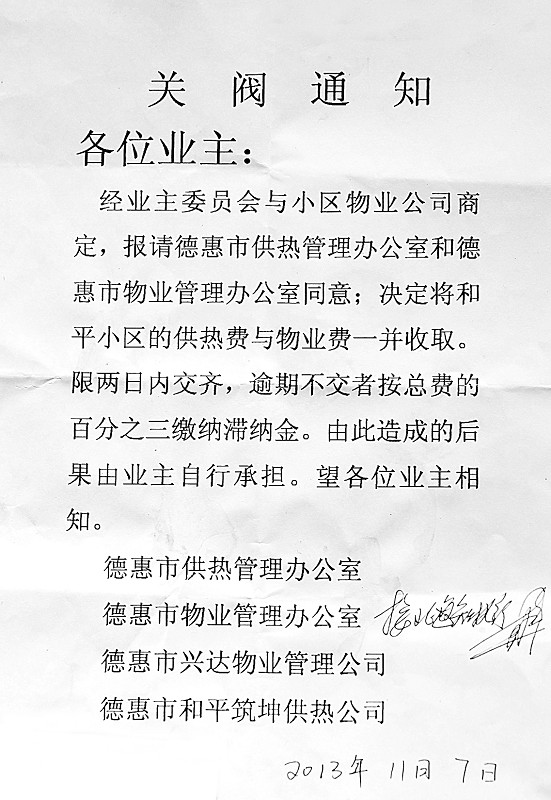 关阀通知
各位业主：
经业主委员会与小区物业公司商
定，报请德惠市供热管理办公室和德
惠市物业管理办公室同意；决定将和
平小区的供热费与物业费一并收取。
限两日内交齐，逾期不交者按总费的
百分之三缴纳滞纳金。由此造成的后
果由业主自行承担。望各位业主相
知。
德惠市供热管理办公室
德惠市物业管理办公室
德惠市兴达物业管理公司
德惠市和平筑坤供热公司
2013年 11日 7日